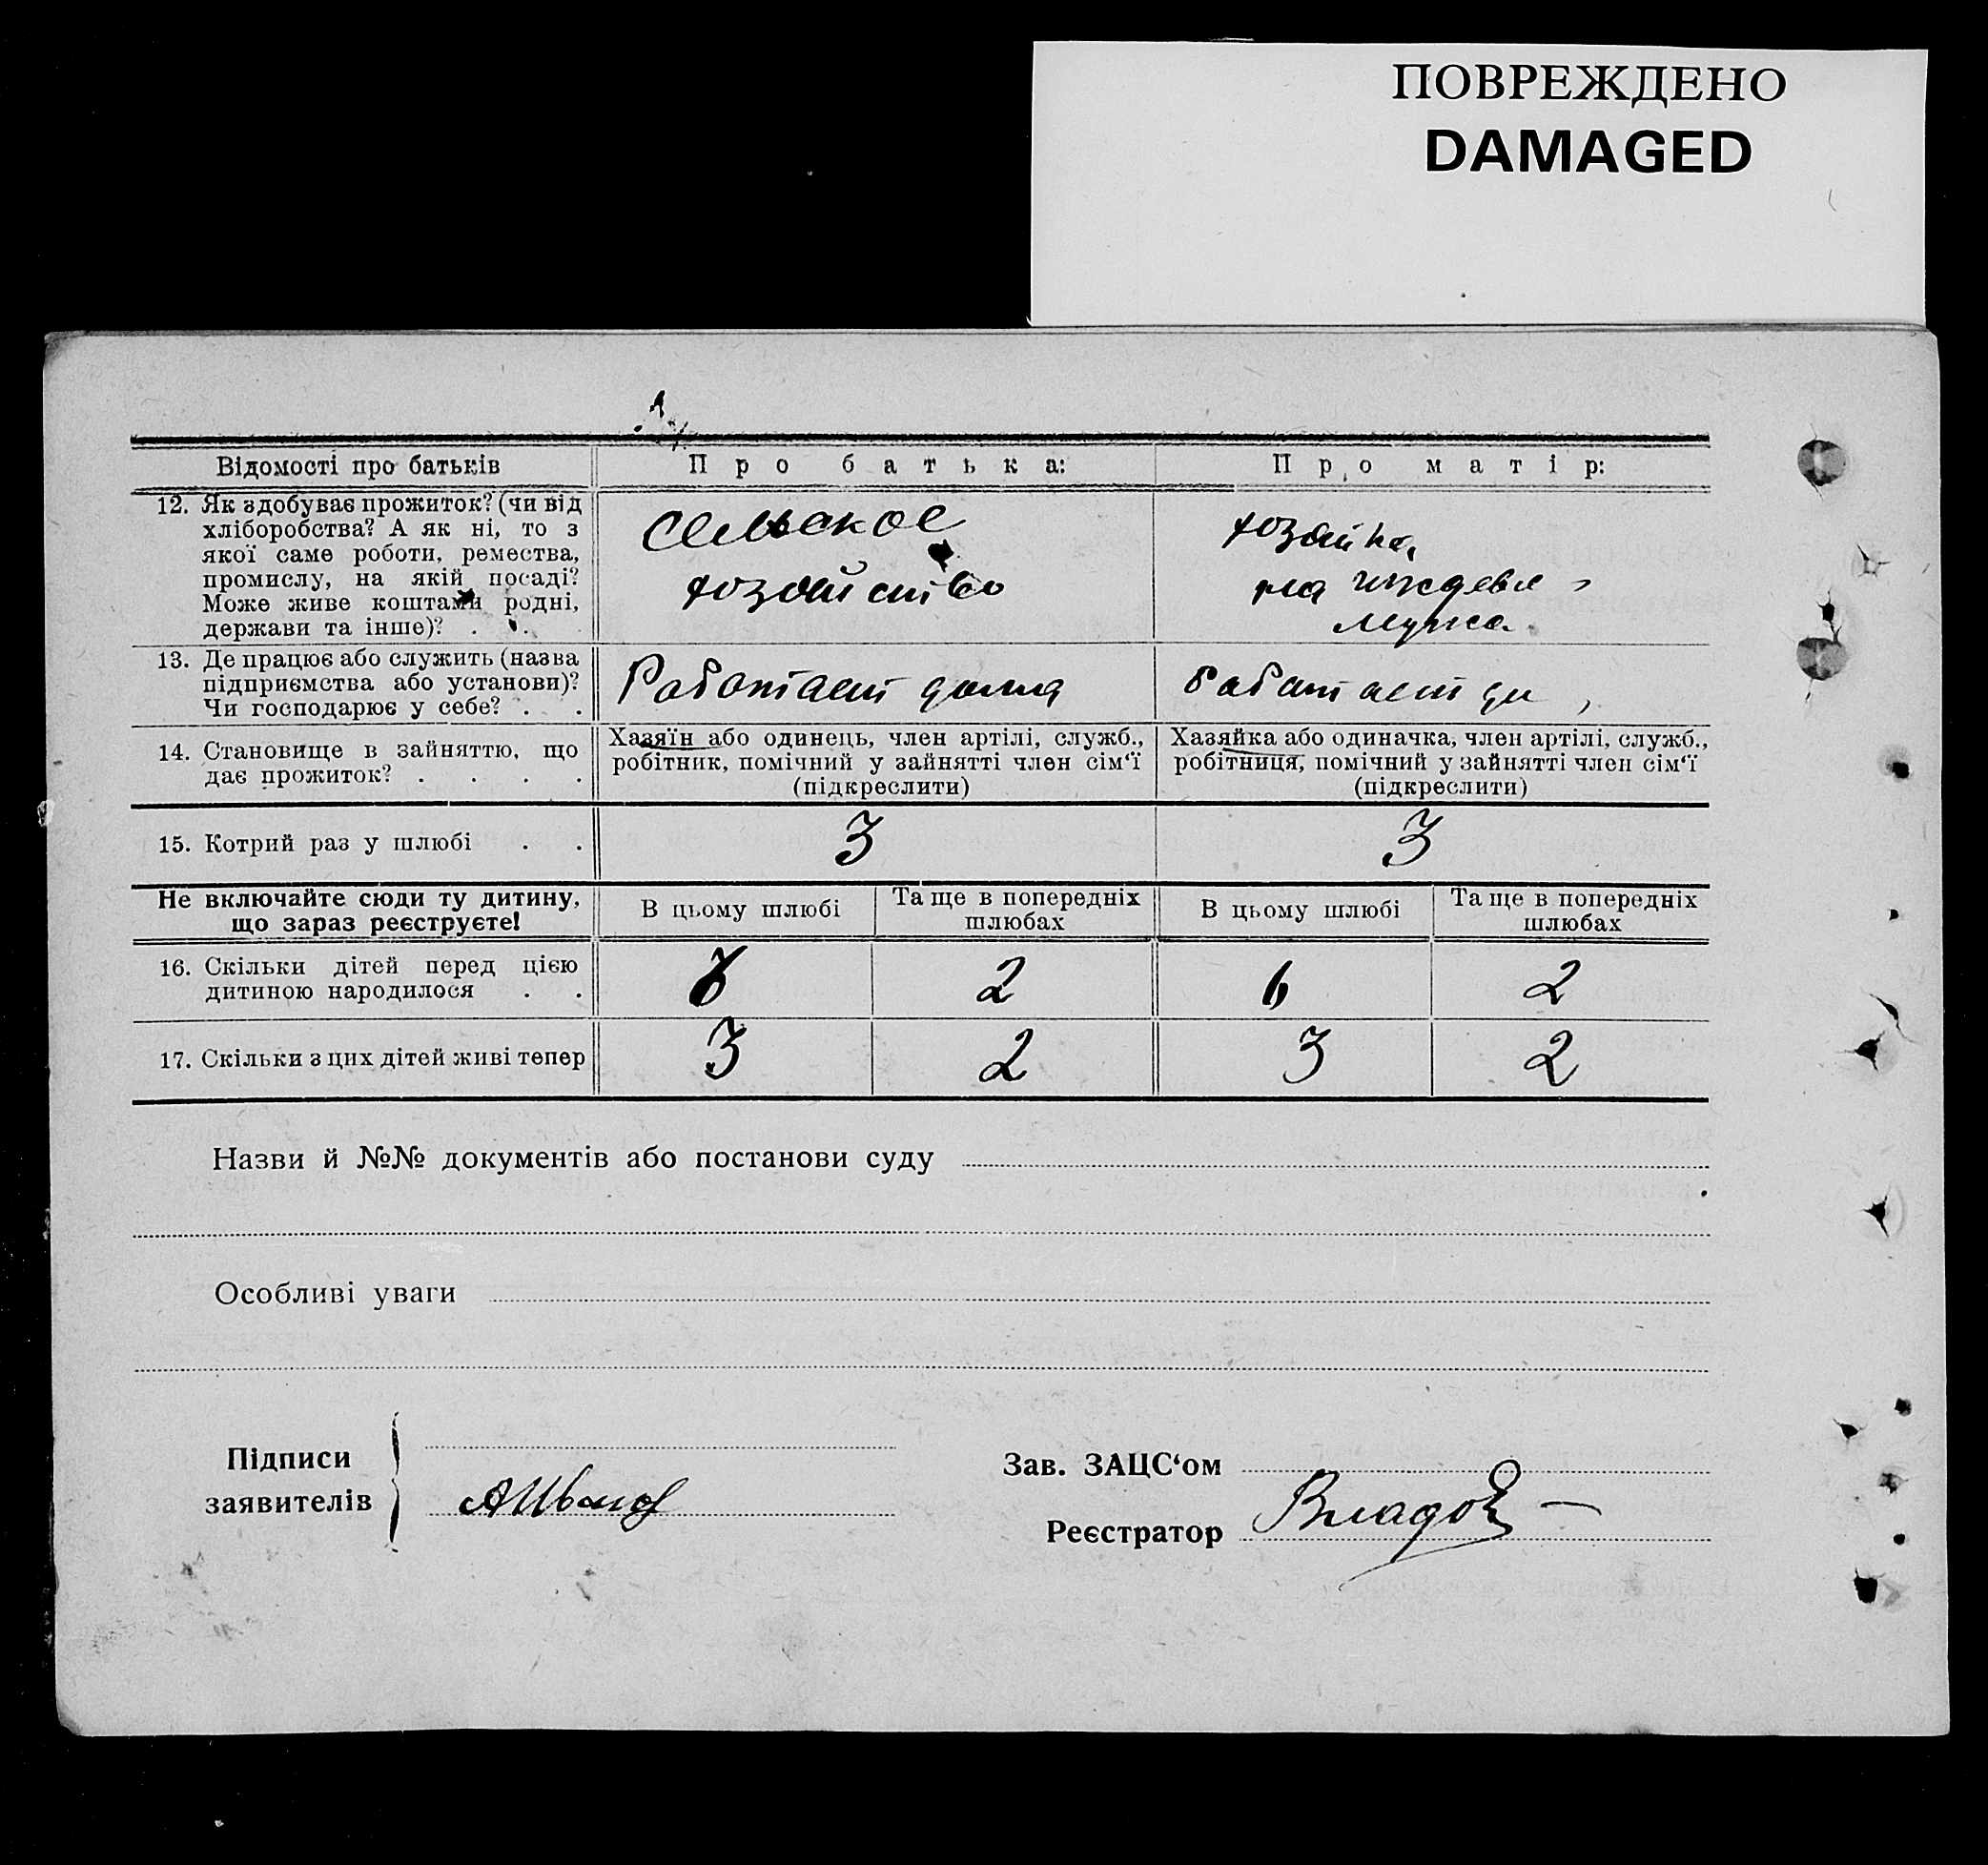 ПОВРЕЖДЕНО
DAMAGED
Відомості про батьків
Про батька:
Про матір:
12. Як здобуває прожиток? (чи від
хліборобства? А як ні, то з
якої саме роботи, ремества,
промислу, на якій посаді?
Може живе коштами родні,
держави та інше)? . .
Сельское
хозяйство
хозяйка
на иждеве
мужа
13. Де працює або служить (назва
підприємства або установи)?
Чи господарює у себе? . .
Работает дома
работает
14. Становище в зайняттю, що
дає прожиток? . . . .
Хазяїн або одинець, член артілі, служб.,
робітник, помічний у зайнятті член сім‘ї
(підкреслити)
Хазяйка або одиначка, член артілі, служб.,
робітниця, помічний у зайнятті член сім‘ї
(підкреслити)
15. Котрий раз у шлюбі . .
3
3
Не включайте сюди ту дитину,
що зараз реєструєте!
В цьому шлюбі
Та ще в попередніх
шлюбах
В цьому шлюбі
Та ще в попередніх
шлюбах
16. Скільки дітей перед цією
дитиною народилося . .
2
6
2
17. Скільки з цих дітей живі тепер
3
2
3
2
Назви й №№ документів або постанови суду
Особливі уваги
Підписи
заявителів
Зав. ЗАЦС‘ом
Реєстратор